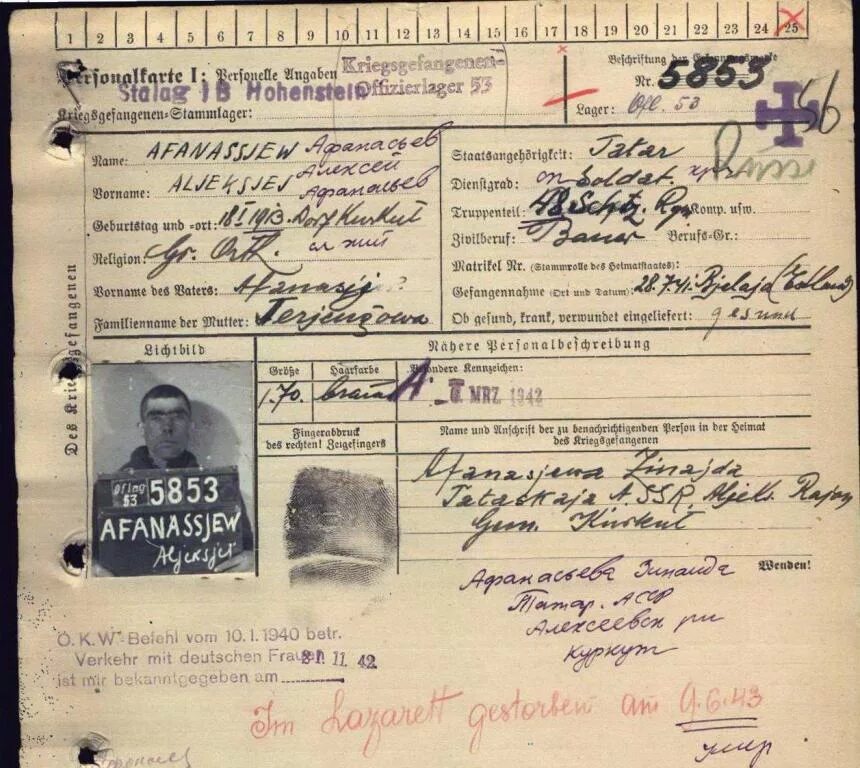 1 2 3 4 5 6 7 8 9 10 11 12 13 14 15 16 17 18 19 20 21 22 23 24 25
Personalkarte I: Personelle Angaben
Kriegsgefangenen-
Offizierlager 53
Stalag IB Hohenstein
Kriegsgefangenen-Stammlager:
Beschriftung der Erkennungsmarke
Nr. 5853
Lager: Ofl. 53
Des Kriegsgefangenen
Name: AFANASSJEW Афанасьев
Vorname: ALJEKSJEJ Алексей
Афанасьев
Geburtstag und -ort: 18.I.1913. Dorf Kurkut
Religion: Gr. Orth.
Vorname des Vaters: Afanasij
Familienname der Mutter: Terjenzowa
Staatsangehörigkeit: Tatar
Russe
Dienstgrad: Soldat.
Truppenteil: 48. Schtz. Rgt. Komp. usw.
Zivilberuf: Bauer Berufs-Gr.:
Matrikel Nr. (Stammrolle des Heimatstaates):
Gefangennahme (Ort und Datum): 28.7.41. Bjelaja (Estland)
Ob gesund, krank, verwundet eingeliefert: gesund
Lichtbild
Nähere Personalbeschreibung
Größe Haarfarbe Besondere Kennzeichen:
1.70. braun
MRZ. 1942
Fingerabdruck
des rechten! Zeigefingers
Name und Anschrift der zu benachrichtigenden Person in der Heimat
des Kriegsgefangenen
Oflag
53 5853
AFANASSJEW
Aljeksjei
Afanasjewa Zinajda
Tatarskaja A.SSR. Aljeks. Rajon
Gem. Kurkut
Wenden!
Афанасьева Зинаида
Татар. АССР
Алексеевск рн
Куркут
O.K.W.-Befehl vom 10.I.1940 betr.
Verkehr mit deutschen Frauen
ist mir bekanntgegeben am
21. 11. 42
Im Lazarett gestorben am 9.6.43
умер